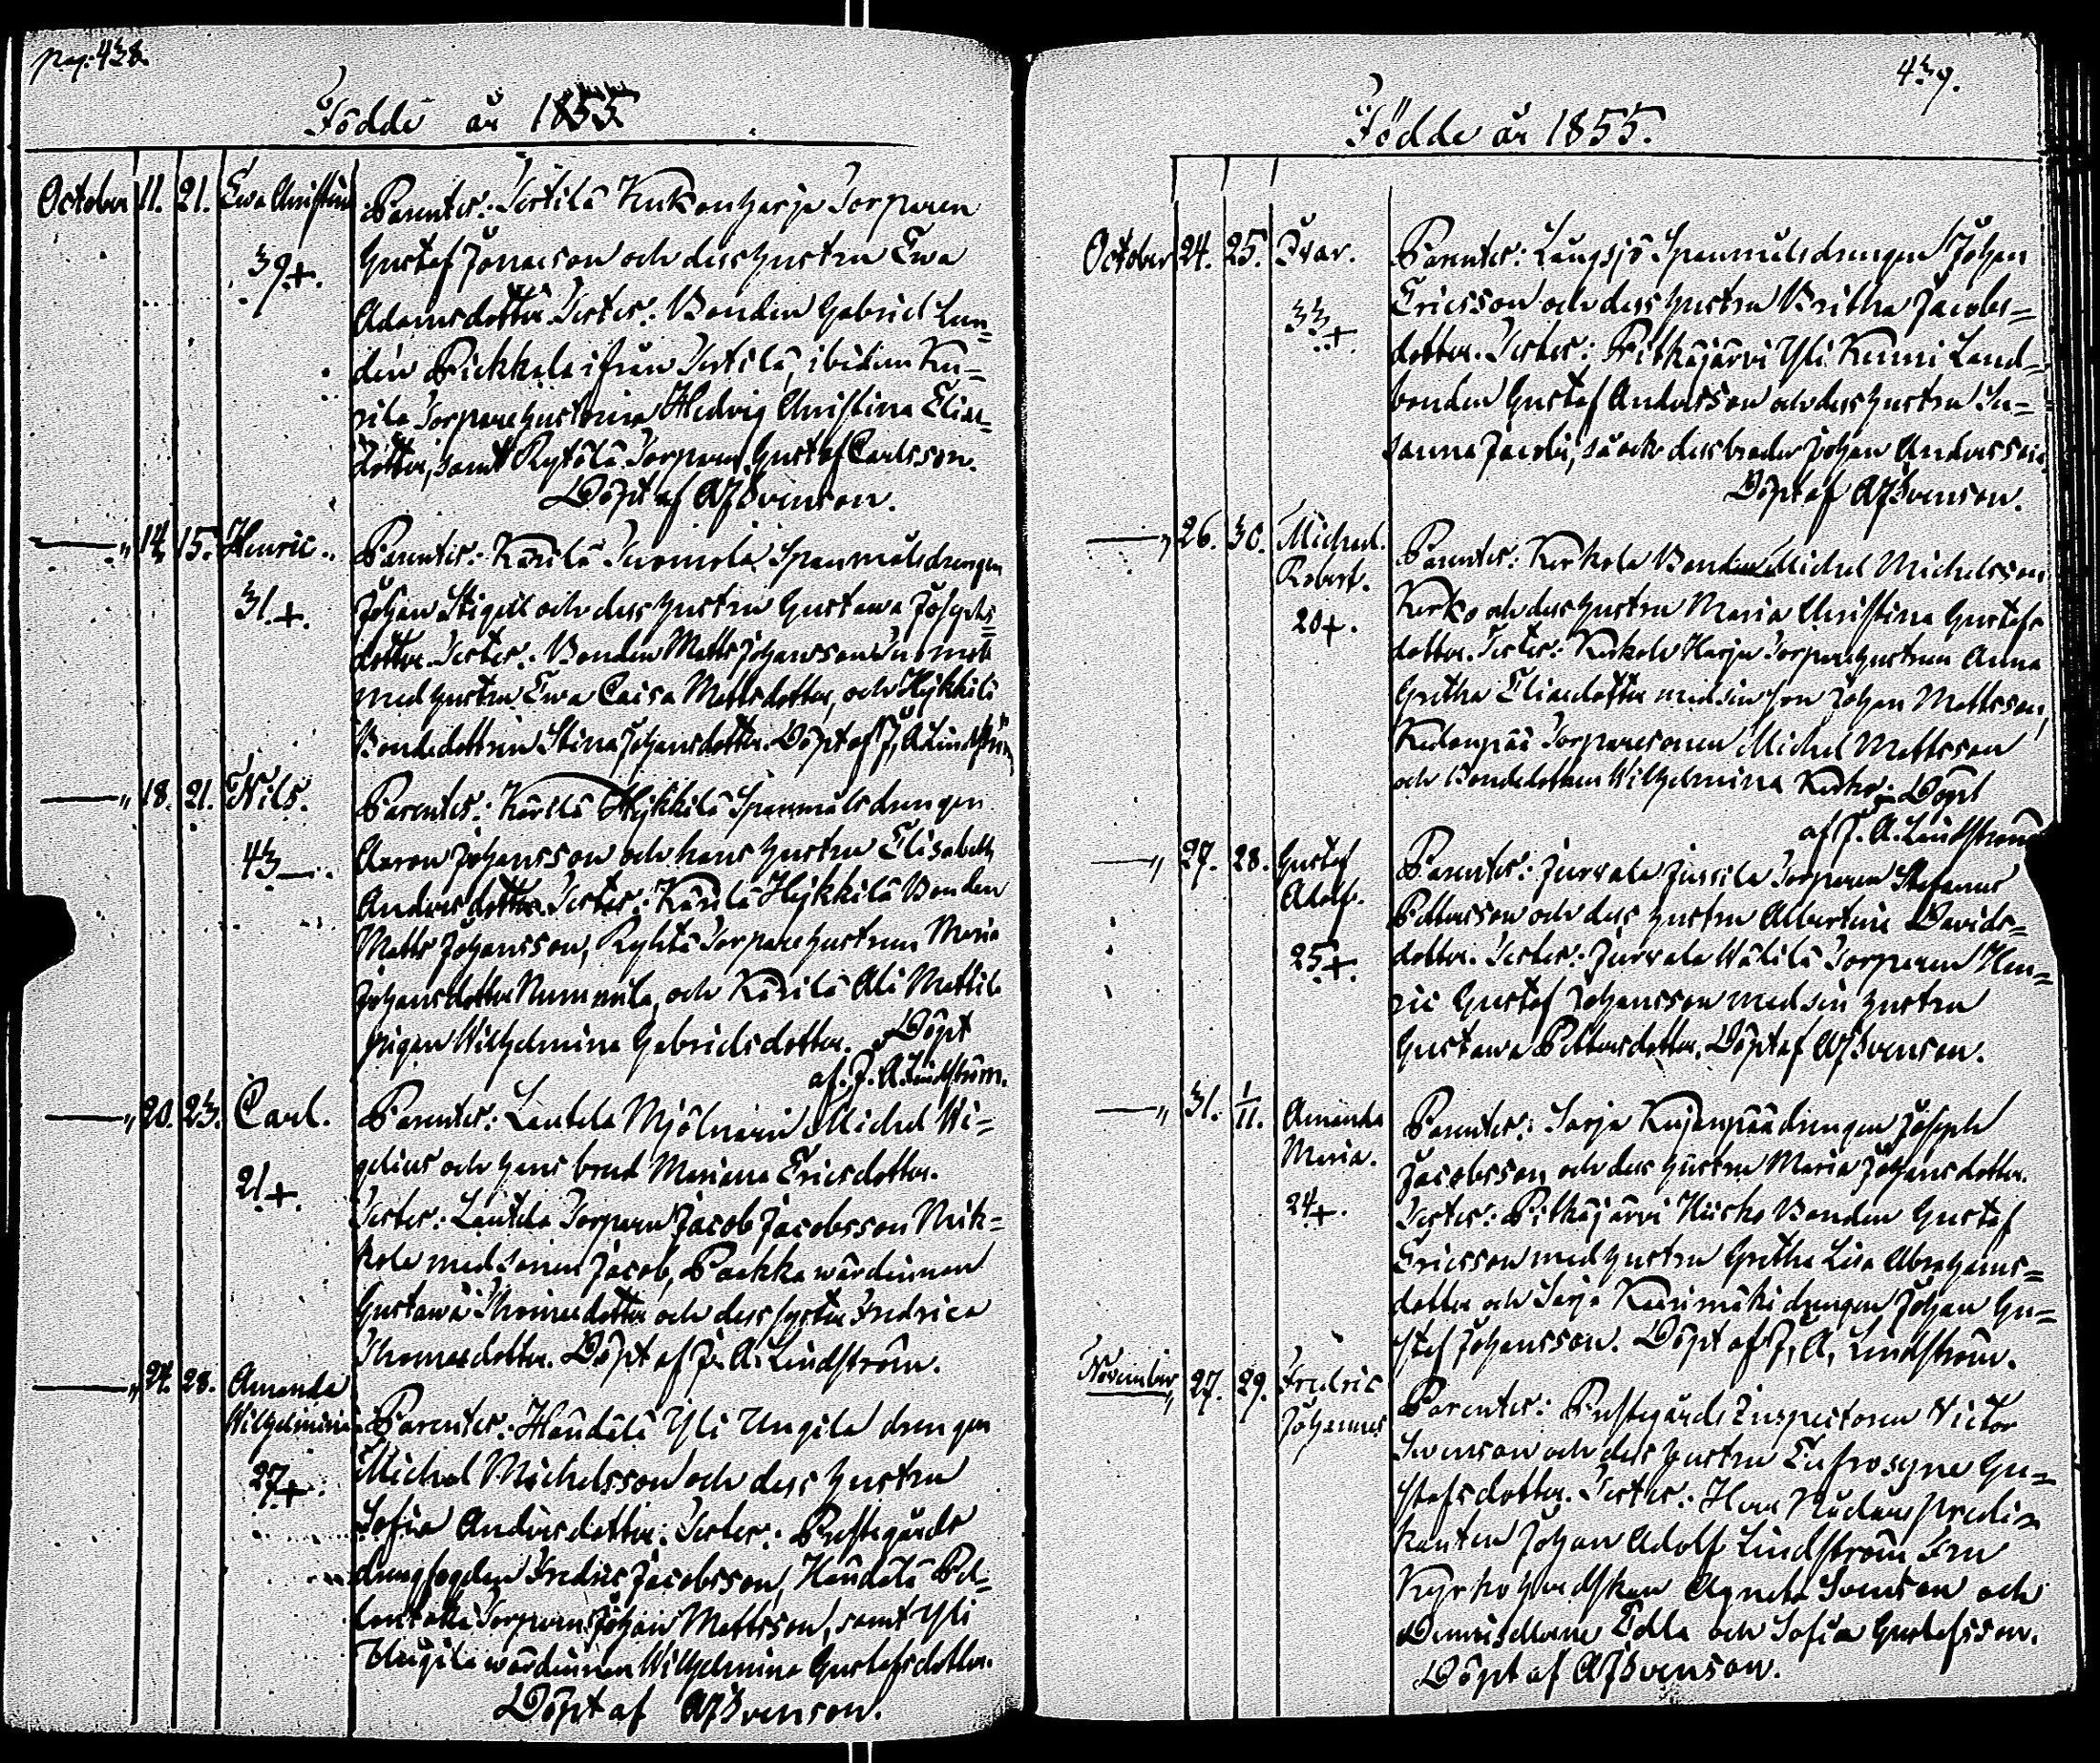 pag: 438.
Födde år 1855.
October 11. 21. Ewa Christina Parenter: Tertilä Kukonharja Torparen
39+. Gustaf Jonasson och dess hustru Ewa
Adamsdotter. Testes: Bonden Gabriel Lun=
dén Pickkala ifrån Tertilä, ibidem
Torparehustrun Hedvig Christina Elias=
dotter, samt Rytölä Torparen Gustaf Carlsson.
Döpt af AJSvenson.
—„ 14. 15. Henric. Parenter: Kärilä Tuomola Spanmålsdrengen
31.+. Johan Stigell och dess hustru Gustava Josephs=
dotter. Testes: Bonden Matts Johansson Tuomola
med hustru Ewa Caisa Mattsdotter, och Hejkkilä
Bondedottren Stina Johansdotter. Döpt af J. A Lindström
—„ 18. 21. Nils. Parenter: Kärilä Hejkkilä Spanmålsdrengen
43—. Aaron Johansson och hans hustru Elisabeth
Andersdotter. Testes: Kärilä Hejkkilä Bonden
Matts Johansson, Torparehustrun Maria
Johansdotter Nummila, och Kärilä Ali Mattila
pigan Wilhelmina Gabrielsdotter. Döpt
af. J. A. Lindström.
—„ 20. 23. Carl. Parenter: Lautela Mjölnarn Michel Wi=
gelius och hans brud Mariana Ericsdotter.
21+. Testes: Lautela Torparen Jacob Jacobsson Nik=
kola med sonen Jacob, Paakka wärdinnan
Gustawa Thomasdotter och dess syster Fredrica
Thomasdotter. Döpt af J. A. Lindström.
—„ 24. 28. Amanda
Wilhelmina Parenter: Handälä Yli Ungila drengen
27+. Michel Michelsson och dess hustru
Sofia Andersdotter. Testes: Prestegårds
drengfogden Fredric Jacobsson, Handälä
Torparen Johan Mattsson, samt Yli
Ungila wärdinnan Wilhelmina Gustafsdotter.
Döpt af AJSvenson.
439.
Födde år 1855.
October 24. 25. Ivar. Parenter: Laugsjö Spanmålsdrengen Johan
33+ Ericsson och dess hustru Britha Jacobs=
dotter. Testes: Pitkäjärvi Yli Kenni Land=
bonden Gustaf Andersson och dess hustru Su=
sanna Jacobi, så ock dess broder Johan Andersson
Döpt af AJSvenson.
—„ 26. 30. Michel. Parenter: Kerkola Bonden Michel Michelsson
Robert. Kerko och dess hustru Maria Christina Gustafs
20+. dotter. Testes: Kerkola Harju Torparehustrun Anna
Gretha Eliædotter med sin son Johan Mattsson,
Torparesonen Michel Mattsson
och Bondedottren Wilhelmina Kerko. Döpt
af J. A. Lindström
—„ 27. 28. Gustaf Parenter: Jurvala Jussila Torparen Stefanus
Adolf. Pettersson och dess hustru Albertina Davids=
25+. dotter. Testes: Jurvala Wälilä Torparen Hen=
ric Gustaf Johansson med sin hustru
Gustawa Pettersdotter. Döpt af AJSvenson.
—„ 31. 1/11. Amanda Parenter: Sarja Kujanpäädrengen Joseph
Maria. Jacobsson och dess hustru Maria Johansdotter.
24+. Testes: Pitkäjärvi Bonden Gustaf
Ericsson med hustru Gretha Lisa Abrahams=
dotter och Sarja drengen Johan Gu=
staf Johansson. Döpt af J. A. Lindström.
November 27. 29. Fredric Parenter: Prestegårds Inspectoren Victor
Johannes Svenson och dess hustru Eufrosyne Gu=
stafsdotter. Testes: Herr Nådårs predi=
kanten Johan Adolf Lindström Fru
Kyrkoherdskan Agneta Svenson och
Demoisellerne Edla och Sofia Gustafsson.
Döpt af AJSvenson.